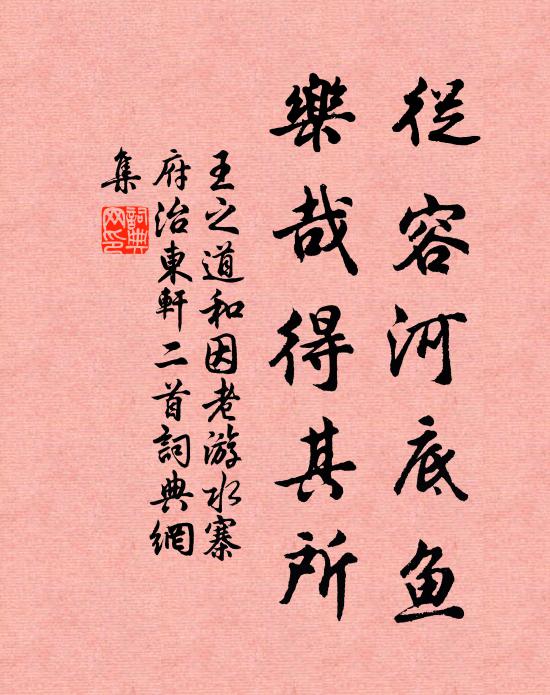 從容河底鱼
樂哉得其所
王之道和因老游水寨
府治東軒二首詞典網
集
詞典
网印